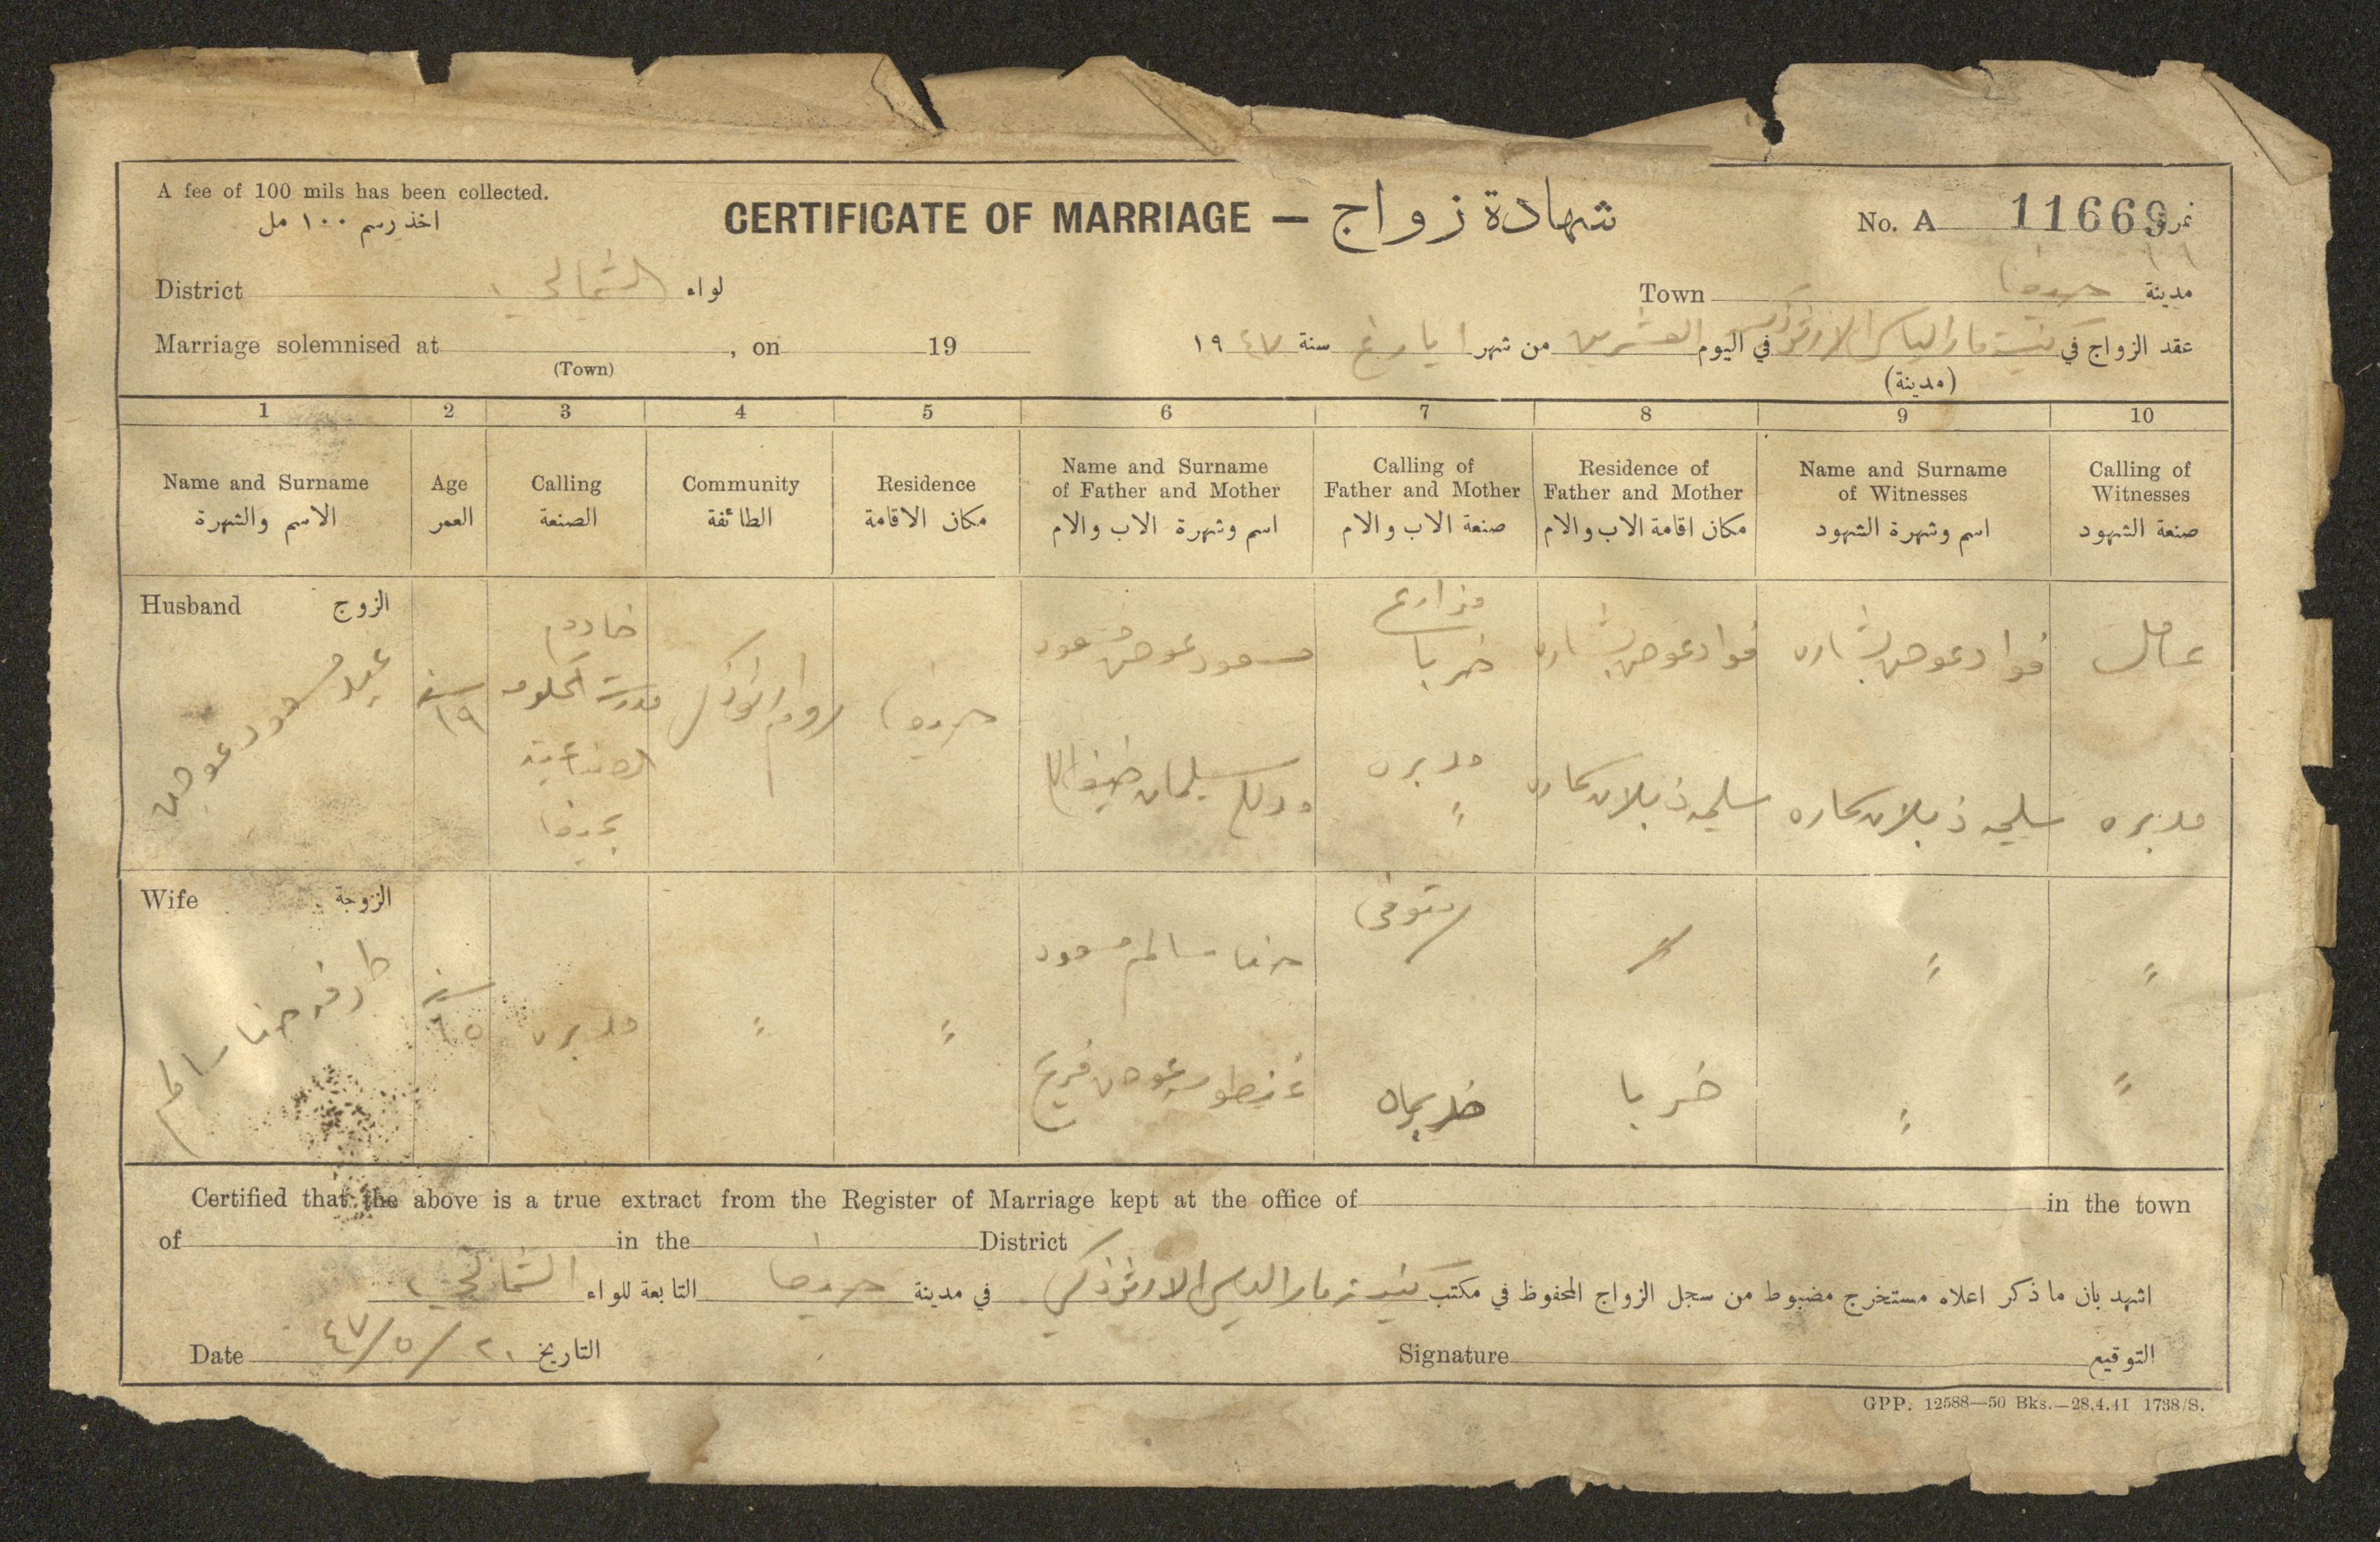 A fee of 100 mils has been collected.
اخذ رسم ١٠٠ مل
CERTIFICATE OF MARRIAGE — شهادة زواج
No. A 11669 نمرة
District الشمالي لواء
Town حيفا مدينة
Marriage solemnised at , on 19
(Town)
عقد الزواج في كنيسة مار الياس الارثوذكس في اليوم العشرين من شهر ايار سنة ١٩٤٧
(مدينة)
1 2 3 4 5 6 7 8 9 10
Name and Surname
الاسم والشهرة
Age
العمر
Calling
الصنعة
Community
الطائفة
Residence
مكان الاقامة
Name and Surname
of Father and Mother
اسم وشهرة الاب والام
Calling of
Father and Mother
صنعة الاب والام
Residence of
Father and Mother
مكان اقامة الاب والام
Name and Surname
of Witnesses
اسم وشهرة الشهود
Calling of
Witnesses
صنعة الشهود
Husband الزوج
عيد مسعود عوض
سنة
١٩
خادم
مدرسة الحكومة
الصناعية
بحيفا
روم ارثوذكس
حيفا
مسعود عوض مسعود
سليمان
مزارع
خربا
مدبره
"
فواد عوض بشاره
فواد عوض بشاره
عامل
مدبره
Wife الزوجة
حنا سالم
سنة
١٥
مدبره
"
"
حنا سالم مسعود
عوض فريح
متوفى
خربا
"
"
"
"
Certified that the above is a true extract from the Register of Marriage kept at the office of in the town
of in the District
اشهد بان ما ذكر اعلاه مستخرج مضبوط من سجل الزواج المحفوظ في مكتب كنيسة مار الياس الارثوذكسي في مدينة حيفا التابعة للواء الشمالي
Date ٢٠/٥/٤٧ التاريخ
Signature التوقيع
GPP. 12588—50 Bks.—28.4.41 1738/S.